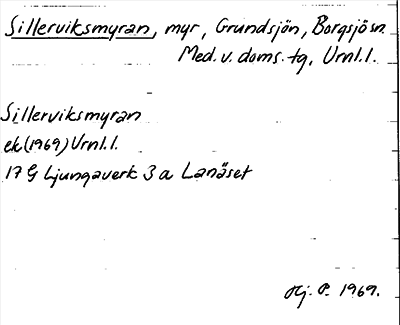 Sillerviksmyran, myr, Grundsjön, Borgsjösn.
Med. v. doms. tg, Vrnl.l.
Sillerviksmyran
ek (1969) Vrnl.l.
17 G Ljungaverk 3 a Lanäset
Hj. P. 1969.